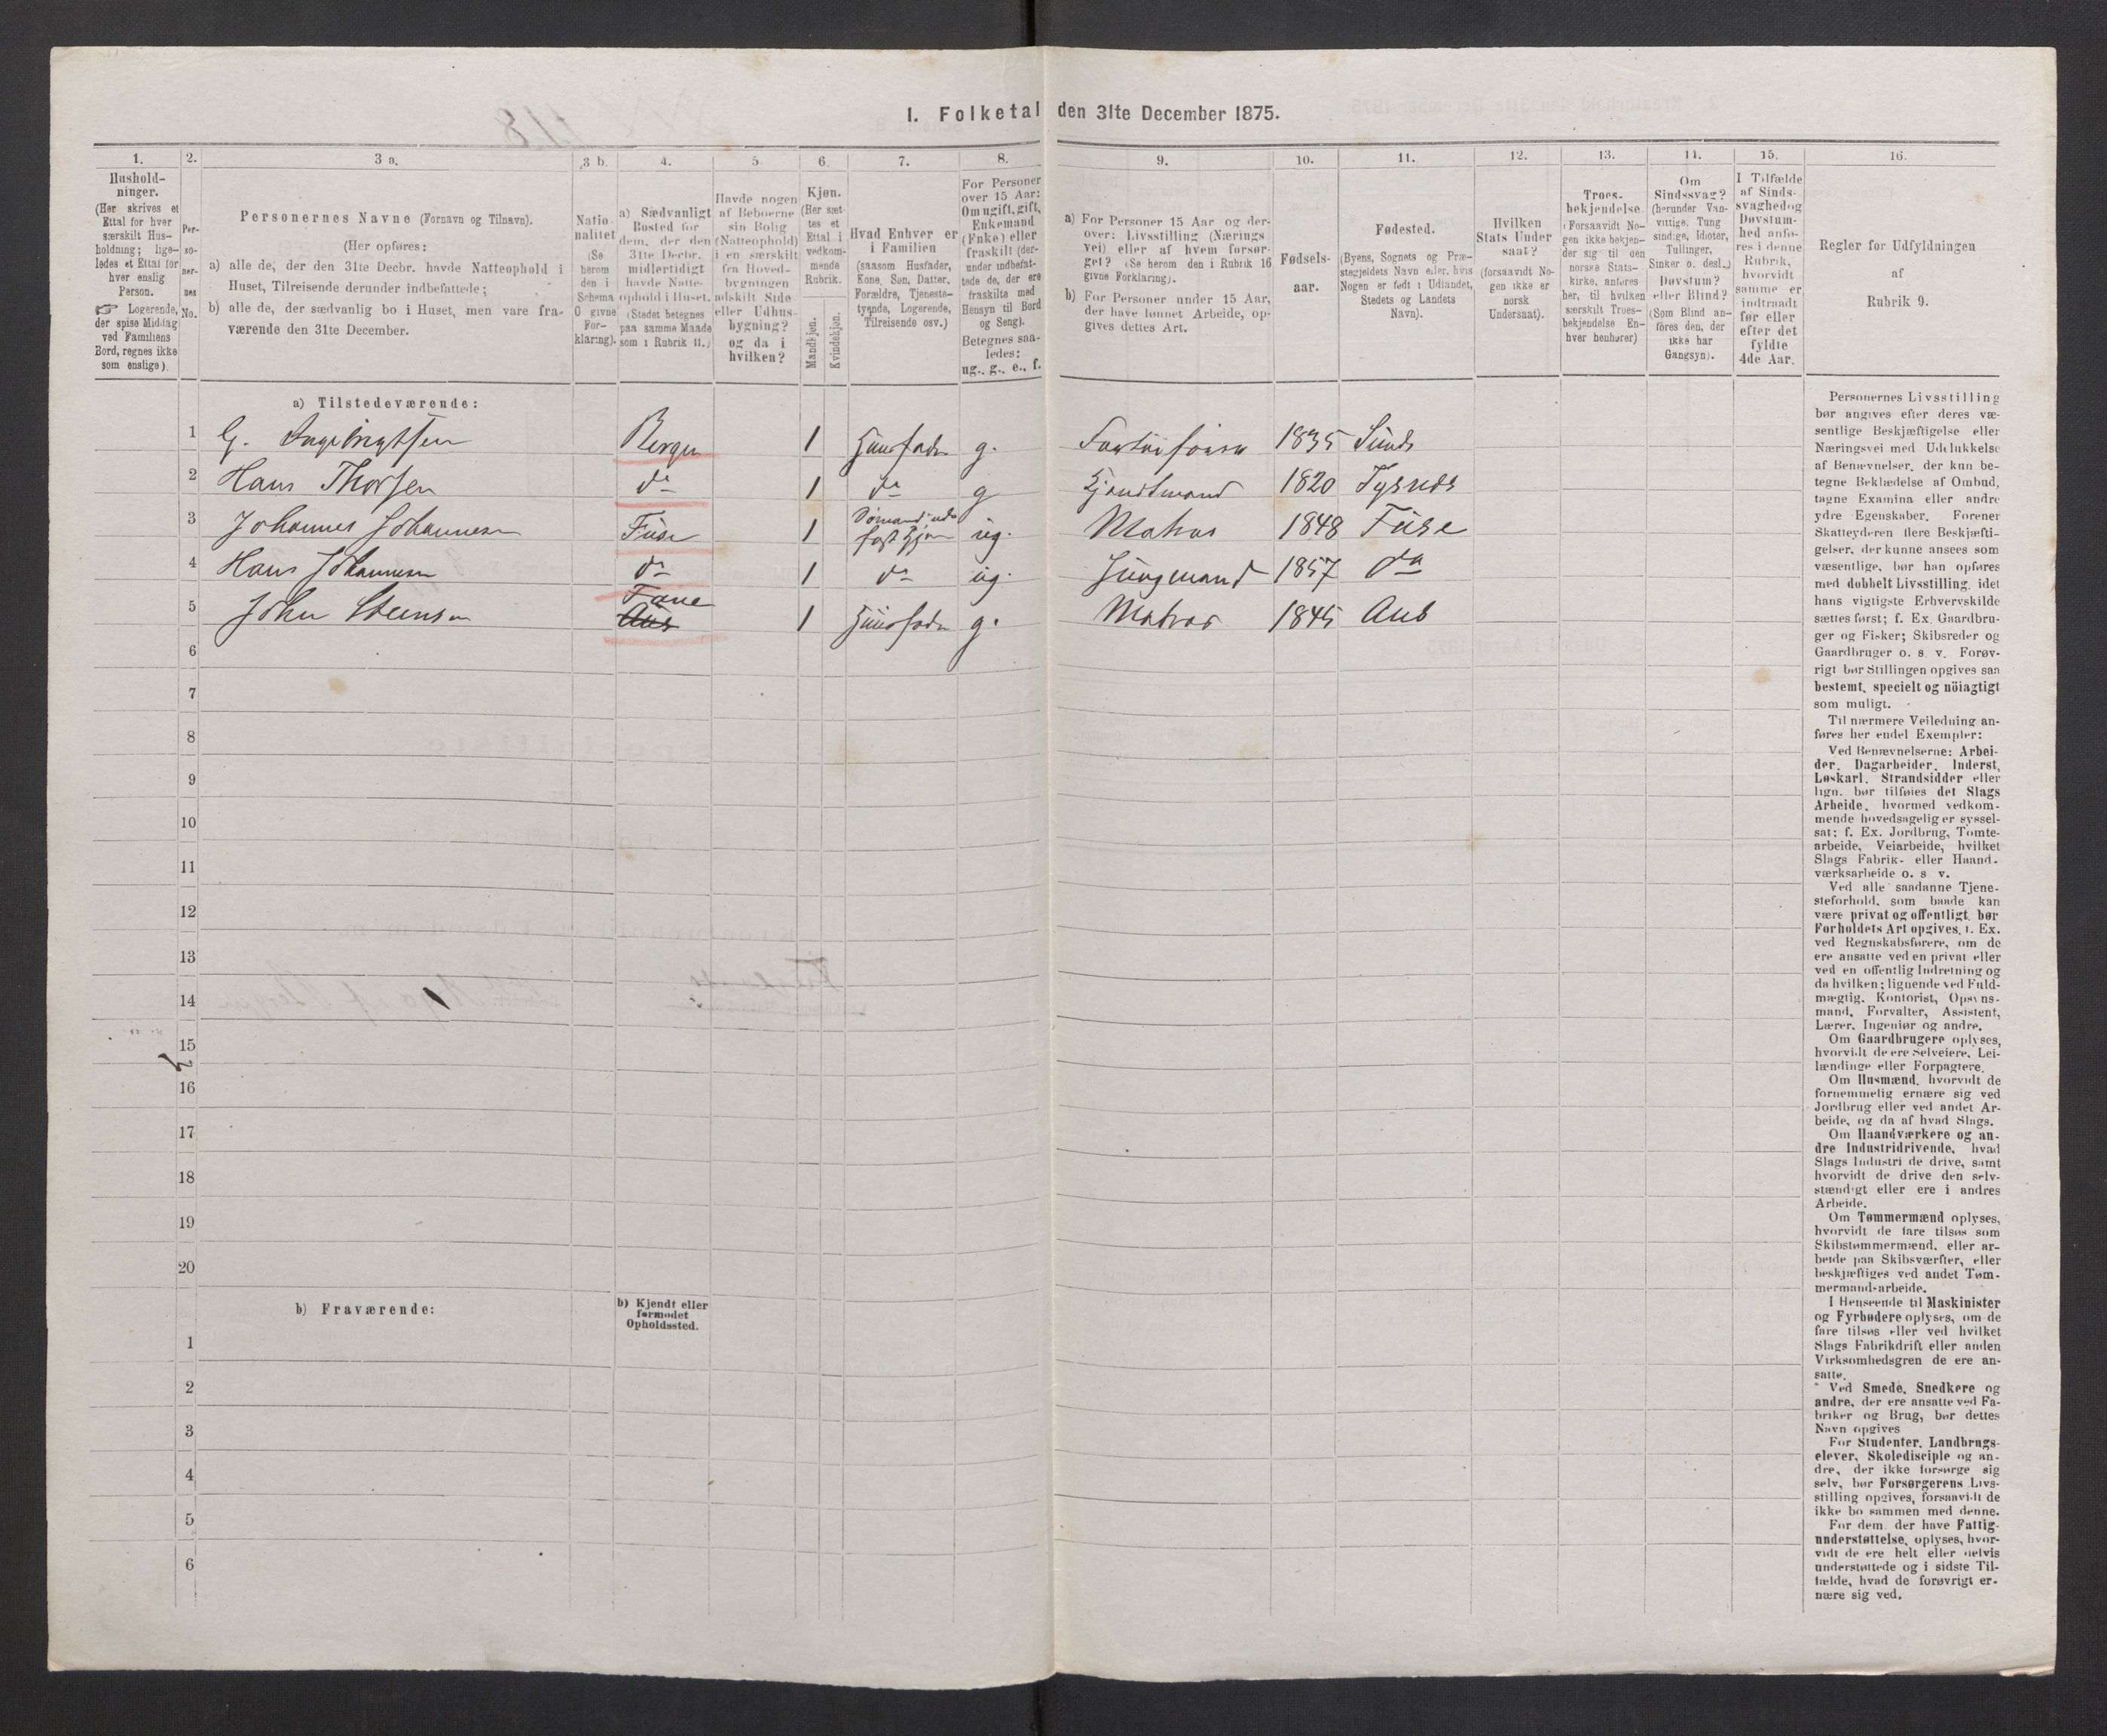 1. Folketal den 31te December 1875.
1.
2.
3 a.
3 b.
4.
5.
6.
7.
8.
9.
10.
11.
12.
13.
14.
15.
16.
Hushold-
ninger.
(Her skrives et
Ettal for hver
særskilt Hus-
holdning; lige-
ledes et Ettal for
hver enslig
Person.
☞ Logerende,
der spise Middag
ved Familiens
Bord, regnes ikke
som enslige).
Per-
so-
ner-
nes
No.
Personernes Navne (Fornavn og Tilnavn).
(Her opføres:
a) alle de, der den 31te Decbr. havde Natteophold i
Huset, Tilreisende derunder indbefattede;
b) alle de, der sædvanlig bo i Huset, men vare fra-
værende den 31te December.
Natio-
nalitet
(Se
herom
den i
Schema
C givne
For-
klaring).
a) Sædvanligt
Bosted for
dem, der den
31te Decbr.
midlertidigt
havde Natte-
ophold i Huset.
(Stedet betegnes
paa samme Maade
som i Rubrik 11.)
Havde nogen
af Beboerne
sin Bolig
(Natteophold)
i en særskilt
fra Hoved-
bygningen
adskilt Side-
eller Udhus-
bygning?
og da i
hvilken?
Kjøn.
(Her sæt-
tes et
Ettal i
vedkom-
mende
Rubrik.
Mandkjøn.
Kvindekjøn.
Hvad Enhver er
i Familien
(saasom Husfader,
Kone, Søn, Datter,
Forældre, Tjeneste-
tyende, Logerende,
Tilreisende osv.)
For Personer
over 15 Aar:
Om ugift, gift,
Enkemand
(Enke) eller
fraskilt (der-
under indbefat-
tede de, der ere
fraskilte med
Hensyn til Bord
og Seng).
Betegnes saa-
ledes:
ug., g., e., f.
a) For Personer 15 Aar og der-
over: Livsstilling (Nærings-
vei) eller af hvem forsør-
get? (Se herom den i Rubrik 16
givne Forklaring).
b) For Personer under 15 Aar,
der have lønnet Arbeide, op-
gives dettes Art.
Fødsels-
aar.
Fødested.
(Byens, Sognets og Præ-
stegjeldets Navn eller, hvis
Nogen er født i Udlandet,
Stedets og Landets
Navn).
Hvilken
Stats Under-
saat?
(forsaavidt No-
gen ikke er
norsk
Undersaat).
Troes-
bekjendelse.
(Forsaavidt No-
gen ikke bekjen-
der sig til den
norske Stats-
kirke, anføres
her, til hvilken
særskilt Troes-
bekjendelse En-
hver henhører)
Om
Sindssvag?
(herunder Van-
vittige, Tung-
sindige, Idioter,
Tullinger,
Sinker o. desl.)
Døvstum?
eller Blind?
(Som Blind an-
føres den, der
ikke har
Gangsyn).
I Tilfælde
af Sinds-
svaghed og
Døvstum-
hed anfø-
res i denne
Rubrik,
hvorvidt
samme er
indtraadt
før eller
efter det
fyldte
4de Aar.
Regler for Udfyldningen
af
Rubrik 9.
a) Tilstedeværende:
1 G. Ingebrigtsen Bergen 1 Huusfader g. 1835 Sund
2 Hans Thorsen do 1 do g Kjendtmand 1820 Tysnes
3 Johannes Johannesen Fuse 1 ug. Matros 1848 Fuse
4 Hans Johannesen do 1 do ug. Jungmand 1857 do
Fane
5 John Steensen Aus 1 Huusfader g. Matros 1845 Aus
6
7
8
9
10
11
12
13
14
15
16
17
18
19
20
b) Fraværende:
b) Kjendt eller
formodet
Opholdssted.
1
2
3
4
5
6
Personernes Livsstilling
bør angives efter deres væ-
sentlige Beskjæftigelse eller
Næringsvei med Udelukkelse
af Benævnelser, der kun be-
tegne Beklædelse af Ombud,
tagne Examina eller andre
ydre Egenskaber. Forener
Skatteyderen flere Beskjæfti-
gelser, der kunne ansees som
væsentlige, bør han opføres
med dobbelt Livsstilling, idet
hans vigtigste Erhvervskilde
sættes først; f. Ex. Gaardbru-
ger og Fisker; Skibsreder og
Gaardbruger o. s. v. Forøv-
rigt bør Stillingen opgives saa
bestemt, specielt og nöiagtigt
som muligt.
Til nærmere Veiledning an-
føres her endel Exempler:
Ved Benævnelserne: Arbei-
der, Dagarbeider, Inderst,
Løskarl, Strandsidder eller
lign. bør tilføies det Slags
Arbeide, hvormed vedkom-
mende hovedsagelig er syssel-
sat; f. Ex. Jordbrug, Tomte-
arbeide, Veiarbeide, hvilket
Slags Fabrik- eller Haand-
værksarbeide o. s. v.
Ved alle saadanne Tjene-
steforhold, som baade kan
være privat og offentligt, bør
Forholdets Art opgives, f. Ex.
ved Regnskabsførere, om de
ere ansatte ved en privat eller
ved en offentlig Indretning og
da hvilken; lignende ved Fuld-
mægtig, Kontorist, Opsyns-
mand, Forvalter, Assistent,
Lærer, Ingeniør og andre.
Om Gaardbrugere oplyses,
hvorvidt de ere Selveiere, Lei-
lændinge eller Forpagtere.
Om Husmænd, hvorvidt de
fornemmelig ernære sig ved
Jordbrug eller ved andet Ar-
beide, og da af hvad Slags.
Om Haandværkere og an-
dre Industridrivende, hvad
Slags Industri de drive, samt
hvorvidt de drive den selv-
stændigt eller ere i andres
Arbeide.
Om Tømmermænd oplyses,
hvorvidt de fare tilsøs som
Skibstømmermænd, eller ar-
beide paa Skibsværfter, eller
beskjæftiges ved andet Tøm-
mermandsarbeide.
I Henseende til Maskinister
og Fyrbødere oplyses, om de
fare tilsøs eller ved hvilket
Slags Fabrikdrift eller anden
Virksomhedsgren de ere an-
satte.
Ved Smede, Snedkere og
andre, der ere ansatte ved Fa-
briker og Brug, bør dettes
Navn opgives
For Studenter, Landbrugs-
elever, Skoledisciple og an-
dre, der ikke forsørge sig
selv, bør Forsørgerens Livs-
stilling opgives, forsaavidt de
ikke bo sammen med denne.
For dem, der have Fattig-
understøttelse, oplyses, hvor-
vidt de ere helt eller delvis
understøttede og i sidste Til-
fælde, hvad de forøvrigt er-
nære sig ved.